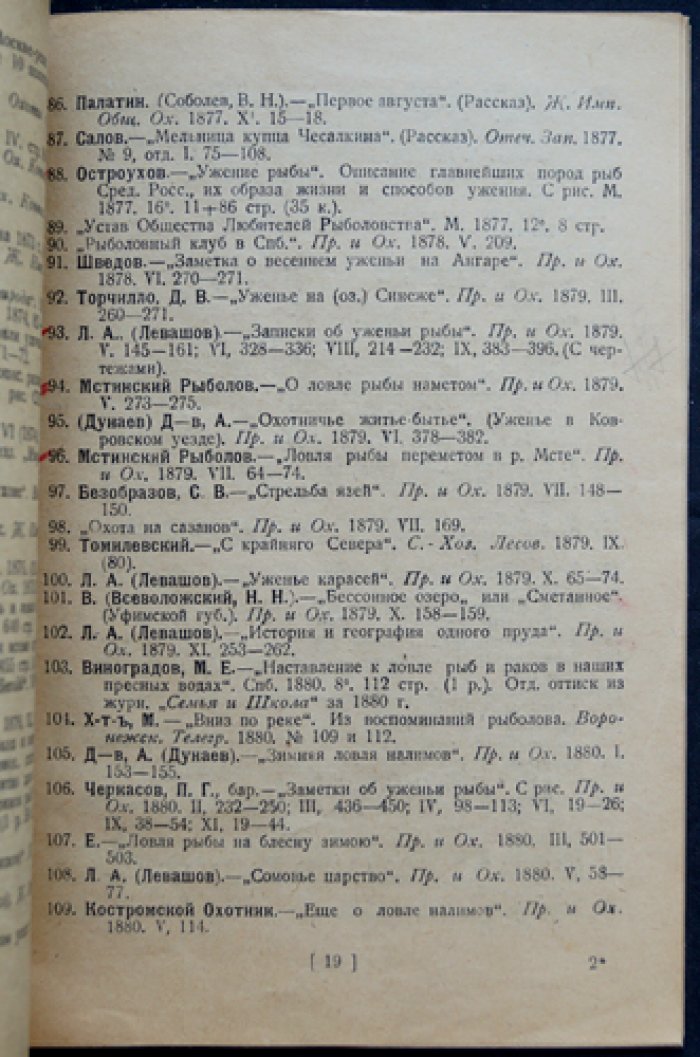 86. Палатин. (Соболев, В. Н.).—„Первое августа“. (Рассказ). Ж. Имп.
Общ. Ох. 1877. X'. 15—18.
87. Салов.—„Мельница купца Чесалкина“. (Рассказ). Отеч. Зап. 1877.
№ 9, отд. I. 75—108.
88. Остроухов.—„Ужение рыбы“. Описание главнейших пород рыб
Сред. Росс., их образа жизни и способов ужения. С рис. М.
1877. 16°. 11+86 стр. (35 к.).
89. „Устав Общества Любителей Рыболовства“. М. 1877. 12°. 8 стр.
90. „Рыболовный клуб в Спб.“ Пр. и Ох. 1878. V. 209.
91. Шведов.—„Заметка о весеннем уженьи на Ангаре“. Пр. и Ох.
1878. VI. 270—271.
92. Торчилло, Д. В.—„Уженье на (оз.) Синеже“. Пр. и Ох. 1879. III.
260—271.
93. Л. А.. (Левашов).—„Записки об уженьи рыбы“. Пр. и Ох. 1879.
V. 145—161; VI, 328—336; VIII, 214—232; IX, 383—396. (С чер-
тежами).
94. Мстинский Рыболов.—„О ловле рыбы наметом“. Пр. и Ох. 1879.
V. 273—275.
95. (Дунаев) Д—в, А.—„Охотничье житье-бытье“. (Уженье в Ков-
ровском уезде). Пр. и Ох. 1879. VI. 378—382.
96. Мстинский Рыболов.—„Ловля рыбы переметом в р. Мсте“. Пр.
и Ох. 1879. VII. 64—74.
97. Безобразов, С. В.—„Стрельба язей“. Пр. и Ох. 1879. VII. 148—
150.
98. „Охота на сазанов“. Пр. и Ох. 1879. VII. 169.
99. Томилевский.—„С крайняго Севера“. С.-Хоз. Лесов. 1879. IX.
(80).
100. Л. А. (Левашов).—„Уженье карасей“. Пр. и Ох. 1879. X. 65—74.
101. В. (Всеволожский, Н. Н.).—„Бессонное озеро„ или „Сметанное“.
(Уфимской губ.). Пр. и Ох. 1879. X. 158—159.
102. Л. А. (Левашов).—„История и география одного пруда“. Пр. и
Ох. 1879. XI. 253—262.
103. Виноградов, М. Е.—„Наставление к ловле рыб и раков в наших
пресных водах“. Спб. 1880. 8°. 112 стр. (1 р.). Отд. оттиск из
журн. „Семья и Школа“ за 1880 г.
104. Х-т-ъ, М.—„Вниз по реке“. Из воспоминаний рыболова. Воро-
нежск. Телегр. 1880. № 109 и 112.
105. Д—в, А. (Дунаев).—„Зимняя ловля налимов“. Пр. и Ох. 1880. I.
153—155.
106. Черкасов, П. Г., бар.—„Заметки об уженьи рыбы“. С рис. Пр. и
Ох. 1880. II, 232—250; III, 436—450; IV, 98—113; VI, 19—26;
IX, 38—54; XI, 19—44.
107. Е.—„Ловля рыбы на блесну зимою“. Пр. и Ох. 1880. III, 501—
503.
108. Л. А. (Левашов).—„Сомовье царство“. Пр. и Ох. 1880. V, 58—
77.
109. Костромской Охотник.—„Еще о ловле налимов“. Пр. и Ох.
1880. V, 114.
[ 19 ]
2*